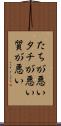 たちが悪い
タチが悪い
質が悪い